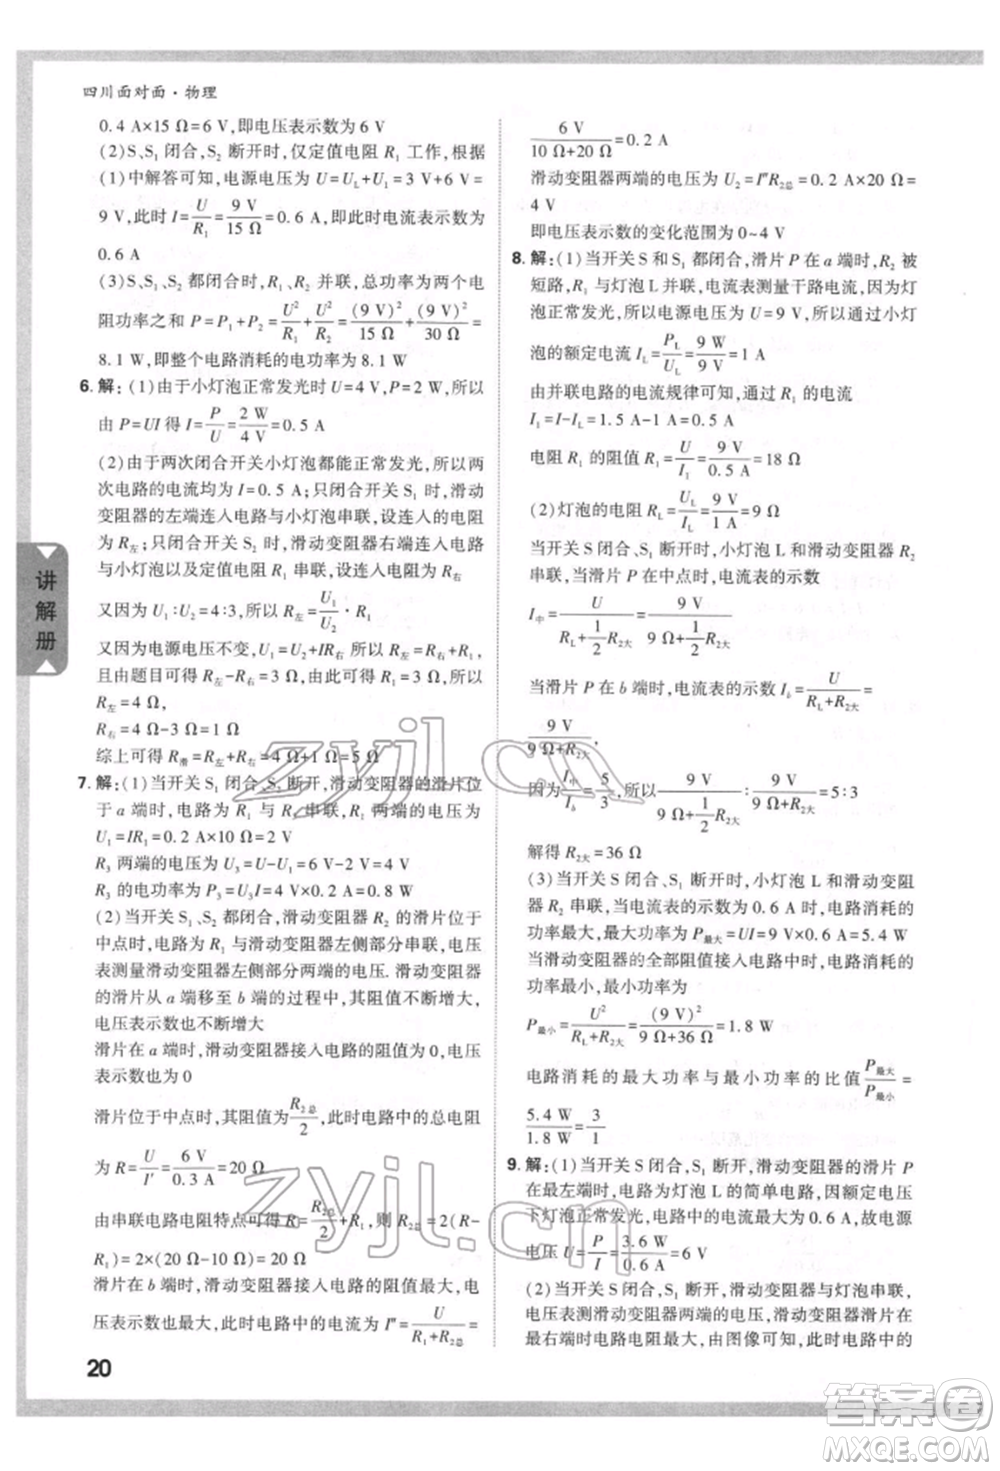 四川面对面·物理
0.4 A×15 Ω=6 V,即电压表示数为 6 V
(2)S、S₁ 闭合,S₂ 断开时,仅定值电阻 R₁ 工作,根据
(1)中解答可知,电源电压为 U=U_L+U₁=3 V+6 V=
9 V,此时 I=U/R₁=9 V/15 Ω=0.6 A,即此时电流表示数为
0.6 A
(3)S、S₁、S₂ 都闭合时,R₁、R₂ 并联,总功率等于各电
阻功率之和 P=P₁+P₂=U²/R₁+U²/R₂=(9 V)²/15 Ω+(9 V)²/30 Ω=
8.1 W,即整个电路消耗的电功率为 8.1 W
6. 解:(1)由于小灯泡正常发光时 U=4 V,P=2 W,所以
由 P=UI 得 I=P/U=2 W/4 V=0.5 A
(2)由于两次闭合开关小灯泡都能正常发光,所以两
次电路的电流均为 I=0.5 A;只闭合开关 S₁ 时,滑动
变阻器的左端连入电路与小灯泡串联,设连入的电阻
为 R左;只闭合开关 S₂ 时,滑动变阻器右端连入电路
与小灯泡以及定值电阻 R₁ 串联,设连入电阻为 R右
又因为 U₁∶U₂=4∶3,所以 R左=U₁/U₂·R₁
又因为电源电压不变,U₁=U₂+IR右
且由题目可知 R左-R右=3 Ω,所以
R左=4 Ω,
R右=4 Ω-3 Ω=1 Ω
综上可得 R滑=R左+R右=4 Ω+1 Ω=5 Ω
7. 解:(1)当开关 S₁ 闭合、S₂ 断开,滑动变阻器的滑片位
于 a 端时,电路为 R₁ 与 R₃ 串联,R₁ 两端的电压为
U₁=IR₁=0.2 A×10 Ω=2 V
R₃ 两端的电压为 U₃=U-U₁=6 V-2 V=4 V
R₃ 的电功率为 P₃=U₃I=4 V×0.2 A=0.8 W
(2)当开关 S₁、S₂ 都闭合,滑动变阻器 R₂ 的滑片位于
中点时,电路为 R₁ 与滑动变阻器左侧部分串联,电压
表测量滑动变阻器左侧部分两端的电压. 滑动变阻器
的滑片从 a 端移至 b 端的过程中,其阻值不断增大,
电压表示数也不断增大
滑片在 a 端时,滑动变阻器接入电路的阻值为 0,电压
表示数也为 0
滑片位于中点时,其阻值为R₂总/2,此时电路中的总电阻
为 R=U/I′=6 V/0.3 A=20 Ω
由串联电路电阻特点可得 R=R₂总/2+R₁,则 R₂总=2(R-
R₁)=2×(20 Ω-10 Ω)=20 Ω
滑片在 b 端时,滑动变阻器接入电路的阻值最大,电压
表示数也最大,此时电路中的电流为 I″=U/(R₁+R₂总)=
6 V/(10 Ω+20 Ω)=0.2 A
滑动变阻器两端的电压为 U₂=I″R₂总=0.2 A×20 Ω=
4 V
即电压表示数的变化范围为 0~4 V
8. 解:(1)当开关 S 和 S₁ 都闭合,滑片 P 在 a 端时,R₂ 被
短路,R₁ 与灯泡 L 并联,电流表测量干路电流,因为灯
泡正常发光,所以电源电压为 U=9 V,所以通过小灯
泡的额定电流 I_L=P_L/U_L=9 W/9 V=1 A
由并联电路的电流规律可知,通过 R₁ 的电流
I₁=I-I_L=1.5 A-1 A=0.5 A
电阻 R₁ 的阻值 R₁=U/I₁=9 V/0.5 A=18 Ω
(2)灯泡的电阻为 R_L=U_L/I_L=9 V/1 A=9 Ω
当开关 S 闭合、S₁ 断开时,小灯泡 L 与滑动变阻器 R₂
串联,当滑片 P 在中点时,电流表的示数
I中=U/(R_L+1/2 R₂大)=9 V/(9 Ω+1/2 R₂大)
当滑片 P 在 b 端时,电流表的示数 I_b=U/(R_L+R₂大)=
9 V/(9 Ω+R₂大),
因为I中/I_b=5/3,所以9 V/(9 Ω+1/2 R₂大)∶9 V/(9 Ω+R₂大)=5∶3
解得 R₂大=36 Ω
(3)当开关 S 闭合、S₁ 断开时,小灯泡 L 和滑动变阻
器 R₂ 串联,当电流表的示数为 0.6 A 时,电路消耗的
功率最大,最大功率为 P最大=UI=9 V×0.6 A=5.4 W
当滑动变阻器的全部阻值接入电路中时,电路消耗的
功率最小,最小功率为
P最小=U²/(R_L+R₂大)=(9 V)²/(9 Ω+36 Ω)=1.8 W
电路消耗的最大功率与最小功率的比值P最大/P最小=
5.4 W/1.8 W=3/1
9. 解:(1)当开关 S 闭合、S₁ 断开,滑动变阻器的滑片 P
在最左端时,电路为灯泡 L 的简单电路,因额定电压
下灯泡正常发光,电路中的电流最大为 0.6 A,故电源
电压 U=P/I=3.6 W/0.6 A=6 V
(2)当开关 S 闭合、S₁ 断开时,滑动变阻器与灯泡串联,
电压表测滑动变阻器两端的电压,滑动变阻器滑片在
最右端时电路电阻最大,由图像可知,此时电路中的
讲解册
20
zyjl.cn
zyjl.cn
答案圈
MXQE.COM